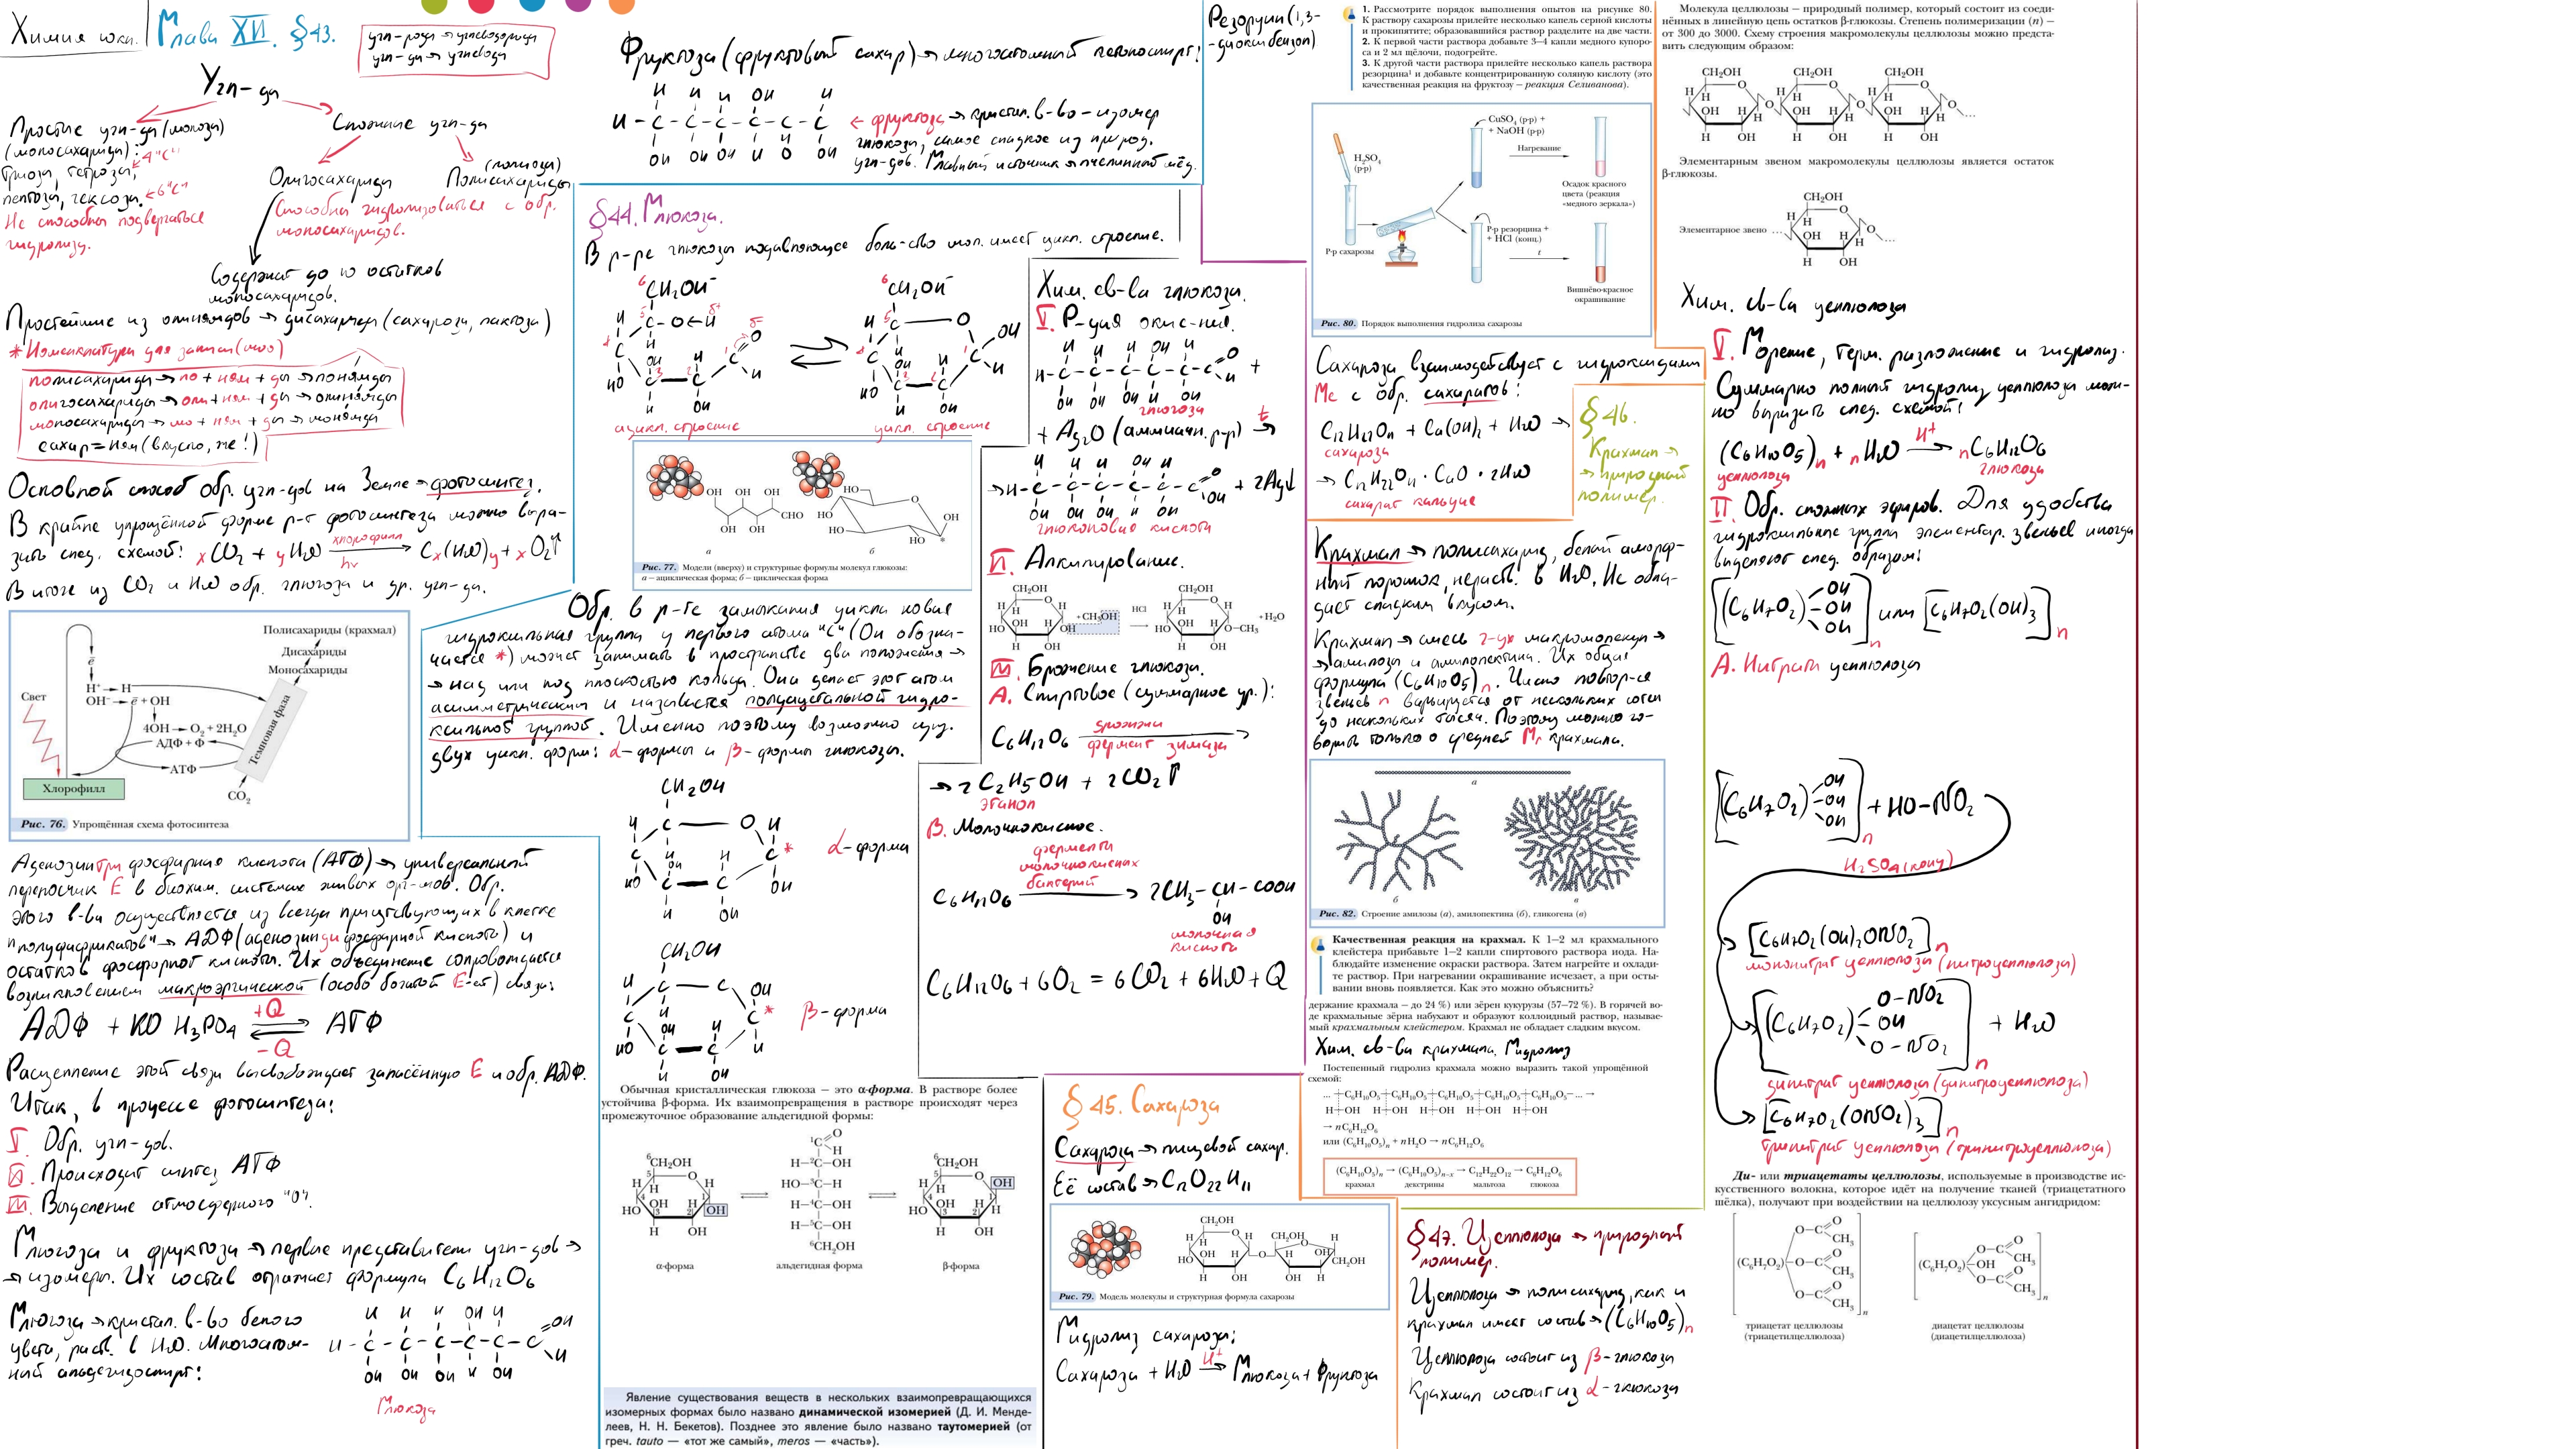 Химия
Глава XI. §43.
угл-роды → углеводороды
угл-ды → углеводы
Угл-ды
Простые угл-ды (монозы)
(моносахариды):
4"C"
Триозы, тетрозы,
пентозы, гексозы. ←6"C"
Не способны подвергаться
гидролизу.
Сложные угл-ды
Олигосахариды
(полиозы)
Полисахариды
Способны гидролизоваться с обр.
моносахаридов.
Содержат до 10 остатков
моносахаридов.
Простейшие из олинямдов → дисахариды (сахароза, лактоза)
*Номенклатура для записи (моо)
полисахариды → по + ням + ды → понямды
олигосахариды → оли + ням + ды → олинямды
моносахариды → мо + ням + ды → монямды
сахар = ням (вкусно, же!)
Основной способ обр. угл-дов на Земле → фотосинтез.
В крайне упрощённой форме р-т фотосинтеза можно выра-
зить след. схемой: xCO2 + yH2O хлорофилл hν → Cx(H2O)y + xO2↑
В итоге из CO2 и H2O обр. глюкоза и др. угл-ды.
Полисахариды (крахмал)
Дисахариды
Моносахариды
Свет
ē
H⁺ → H
OH⁻ → ē + OH
4OH → O₂ + 2H₂O
АДФ + Ф
АТФ
Темновая фаза
Хлорофилл
CO₂
Рис. 76. Упрощённая схема фотосинтеза
Аденозинтрифосфорная кислота (АТФ) → универсальный
переносчик E в биохим. системах живых орг-мов. Обр.
этого в-ва осуществляется из всегда присутствующих в клетке
"полуфабрикатов" → АДФ (аденозиндифосфорной кислоты) и
остатков фосфорной кислоты. Их объединение сопровождается
возникновением макроэргической (особо богатой E-ей) связи:
АДФ + КО H3PO4 +Q ⇌ -Q АТФ
Расщепление этой связи высвобождает запасённую E и обр. АДФ.
Итак, в процессе фотосинтеза:
I. Обр. угл-дов.
II. Происходит синтез АТФ
III. Выделение атмосферного "O".
Глюкоза и фруктоза → первые представители угл-дов →
→ изомеры. Их состав отражает формула C6H12O6
Глюкоза → кристал. в-во белого
цвета, раств. в H2O. Многоатом-
ный альдегидоспирт:
Глюкоза
Фруктоза (фруктовый сахар) → многоатомный кетоноспирт:
← фруктоза → кристал. в-во – изомер
глюкозы, самое сладкое из природ.
угл-дов. Главный источник → пчелиный мёд.
§44. Глюкоза.
В р-ре глюкозы подавляющее боль-ство мол. имеет цикл. строение.
ацикл. строение
цикл. строение
OH OH OH
CHO
OH OH
HO
HO
HO
HO
O
OH
*
а
б
Рис. 77. Модели (вверху) и структурные формулы молекул глюкозы:
а – ациклическая форма; б – циклическая форма
Обр. в р-те замыкания цикла новая
гидроксильная группа у первого атома "C" (Он обозна-
чается *) может занимать в пространстве два положения →
→ над или под плоскостью кольца. Она делает этот атом
асимметрическим и называется полуацетальной гидро-
ксильной группой. Именно поэтому возможно сущ.
двух цикл. форм: α-формы и β-формы глюкозы.
CH2OH
α-форма
CH2OH
β-форма
Обычная кристаллическая глюкоза – это α-форма. В растворе более
устойчива β-форма. Их взаимопревращения в растворе происходят через
промежуточное образование альдегидной формы:
α-форма
альдегидная форма
β-форма
Явление существования веществ в нескольких взаимопревращающихся
изомерных формах было названо динамической изомерией (Д. И. Менде-
леев, Н. Н. Бекетов). Позднее это явление было названо таутомерией (от
греч. tauto — «тот же самый», meros — «часть»).
Хим. св-ва глюкозы.
I. Р-ция окис-ния.
глюкоза
+ Ag2O (аммиачн. р-р) t →
+ 2Ag↓
глюконовая кислота
II. Алкилирование.
+CH₃OH HCl → +H₂O
III. Брожение глюкозы.
А. Спиртовое (суммарное ур.):
C6H12O6 дрожжи фермент зимаза →
→ 2C2H5OH + 2CO2↑
этанол
В. Молочнокислое.
C6H12O6 ферменты молочнокислых бактерий → 2CH3 – CH – COOH
OH
молочная
кислота
C6H12O6 + 6O2 = 6CO2 + 6H2O + Q
§45. Сахароза
Сахароза → пищевой сахар.
Её состав → C12O22H11
Рис. 79. Модель молекулы и структурная формула сахарозы
Гидролиз сахарозы:
Сахароза + H2O H⁺ → Глюкоза + Фруктоза
Резорцин (1,3-
-диоксибензол)
1. Рассмотрите порядок выполнения опытов на рисунке 80.
К раствору сахарозы прилейте несколько капель серной кислоты
и прокипятите; образовавшийся раствор разделите на две части.
2. К первой части раствора добавьте 3–4 капли медного купоро-
са и 2 мл щёлочи, подогрейте.
3. К другой части раствора прилейте несколько капель раствора
резорцина¹ и добавьте концентрированную соляную кислоту (это
качественная реакция на фруктозу – реакция Селиванова).
H₂SO₄
(р-р)
CuSO₄ (р-р) +
+ NaOH (р-р)
Нагревание
Осадок красного
цвета (реакция
«медного зеркала»)
Р-р резорцина +
+ HCl (конц.)
t
Р-р сахарозы
Вишнёво-красное
окрашивание
Рис. 80. Порядок выполнения гидролиза сахарозы
Сахароза взаимодействует с гидроксидами
Me с обр. сахаратов:
C12H22O11 + Ca(OH)2 + H2O →
сахароза
→ C12H22O11 · CaO · 2H2O
сахарат кальция
§46.
Крахмал →
→ природный
полимер.
Крахмал → полисахарид, белый аморф-
ный порошок, нераств. в H2O, Не обла-
дает сладким вкусом.
Крахмал → смесь 2-ух макромолекул →
→ амилозы и амилопектина. Их общая
формула (C6H10O5)n. Число повтор-ся
звеньев n варьируется от нескольких сотен
до нескольких тысяч. Поэтому можно го-
ворить только о средней Mr крахмала.
а
б
в
Рис. 82. Строение амилозы (а), амилопектина (б), гликогена (в)
Качественная реакция на крахмал. К 1–2 мл крахмального
клейстера прибавьте 1–2 капли спиртового раствора иода. На-
блюдайте изменение окраски раствора. Затем нагрейте и охлади-
те раствор. При нагревании окрашивание исчезает, а при осты-
вании вновь появляется. Как это можно объяснить?
держание крахмала – до 24 %) или зёрен кукурузы (57–72 %). В горячей во-
де крахмальные зёрна набухают и образуют коллоидный раствор, называе-
мый крахмальным клейстером. Крахмал не обладает сладким вкусом.
Хим. св-ва крахмала. Гидролиз
Постепенный гидролиз крахмала можно выразить такой упрощённой
схемой:
... C₆H₁₀O₅ C₆H₁₀O₅ C₆H₁₀O₅ C₆H₁₀O₅ C₆H₁₀O₅ ... →
H OH H OH H OH H OH H OH
→ nC₆H₁₂O₆
или (C₆H₁₀O₅)ₙ + nH₂O → nC₆H₁₂O₆
(C₆H₁₀O₅)ₙ → (C₆H₁₀O₅)ₙ₋ₓ → C₁₂H₂₂O₁₂ → C₆H₁₂O₆
крахмал декстрины мальтоза глюкоза
§47. Целлюлоза → природный
полимер.
Целлюлоза → полисахарид, как и
крахмал имеет состав → (C6H10O5)n
Целлюлоза состоит из β-глюкозы
Крахмал состоит из α-глюкозы
Молекула целлюлозы – природный полимер, который состоит из соеди-
нённых в линейную цепь остатков β-глюкозы. Степень полимеризации (n) –
от 300 до 3000. Схему строения макромолекулы целлюлозы можно предста-
вить следующим образом:
Элементарным звеном макромолекулы целлюлозы является остаток
β-глюкозы.
Элементарное звено
Хим. св-ва целлюлозы
I. Горение, терм. разложение и гидролиз.
Суммарно полный гидролиз целлюлозы мож-
но выразить след. схемой:
(C6H10O5)n + nH2O H⁺ → nC6H12O6
целлюлоза
глюкоза
II. Обр. сложных эфиров. Для удобства
гидроксильные группы элементар. звеньев иногда
выделяют след. образом:
[(C6H7O2) OH OH OH]n или [C6H7O2(OH)3]n
А. Нитраты целлюлозы
[(C6H7O2) OH OH OH]n + HO–NO2
H2SO4 (конц)
[C6H7O2(OH)2ONO2]n
мононитрат целлюлозы (нитроцеллюлоза)
[(C6H7O2) O–NO2 OH O–NO2]n + H2O
динитрат целлюлозы (динитроцеллюлоза)
[C6H7O2(ONO2)3]n
тринитрат целлюлозы (тринитроцеллюлоза)
Ди- или триацетаты целлюлозы, используемые в производстве ис-
кусственного волокна, которое идёт на получение тканей (триацетатного
шёлка), получают при воздействии на целлюлозу уксусным ангидридом:
триацетат целлюлозы
(триацетилцеллюлоза)
диацетат целлюлозы
(диацетилцеллюлоза)